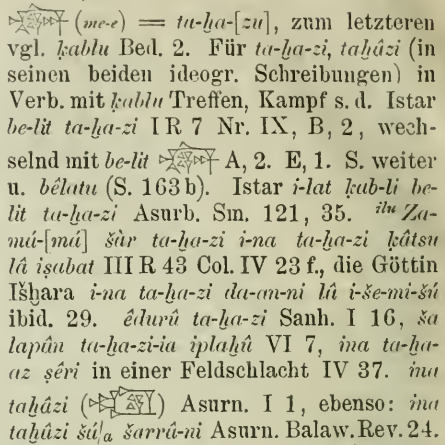 (me-e) = ta-ḫa-[zu], zum letzteren
vgl. ḳablu Bed. 2. Für ta-ḫa-zi, taḫâzi (in
seinen beiden ideogr. Schreibungen) in
Verb. mit ḳablu Treffen, Kampf s. d. Istar
be-lit ta-ḫa-zi I R 7 Nr. IX, B, 2, wech-
selnd mit be-lit A, 2. E, 1. S. weiter
u. bêlatu (S. 163 b). Istar i-lat ḳab-li be-
lit ta-ḫa-zi Asurb. Sm. 121, 35. ilu Za-
mú-[mú] šàr ta-ḫa-zi i-na ta-ḫa-zi ḳâtsu
lâ iṣabat III R 43 Col. IV 23 f., die Göttin
Išḫara i-na ta-ḫa-zi da-an-ni lâ i-še-mi-šú
ibid. 29. êdurû ta-ḫa-zi Sanh. I 16, ša
lapân ta-ḫa-zi-ia iplaḫû VI 7, ina ta-ḫa-
az ṣêri in einer Feldschlacht IV 37. ina
taḫâzi () Asurn. I 1, ebenso: ina
taḫâzi šá šarrâ-ni Asurn. Balaw. Rev. 24.